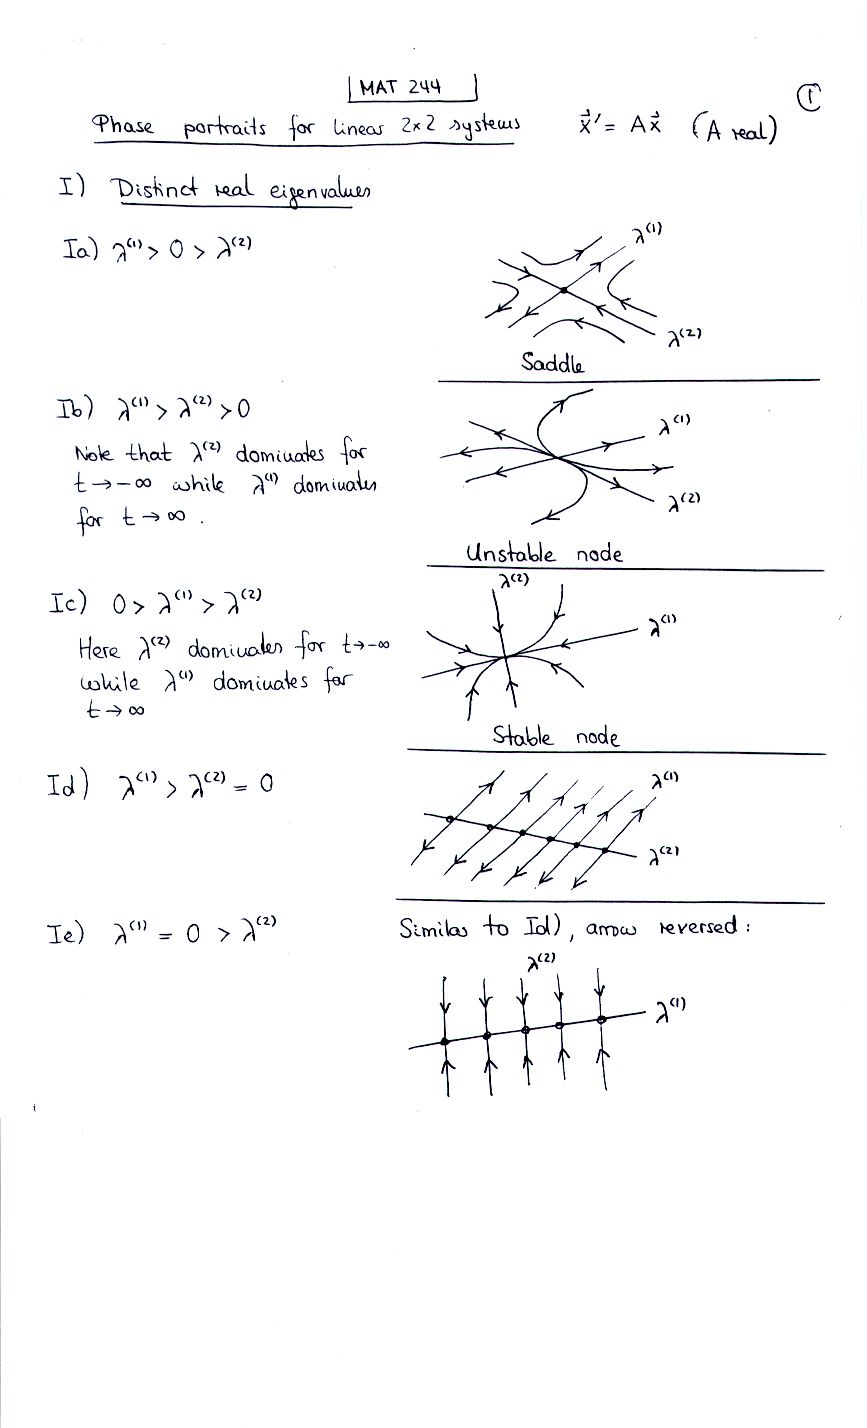 MAT 244
①
Phase portraits for linear 2×2 systems x⃗' = Ax⃗ (A real)
I) Distinct real eigenvalues
Ia) λ⁽¹⁾ > 0 > λ⁽²⁾
λ⁽¹⁾
λ⁽²⁾
Saddle
Ib) λ⁽¹⁾ > λ⁽²⁾ > 0
λ⁽¹⁾
Note that λ⁽²⁾ dominates for
t → -∞ while λ⁽¹⁾ dominates
for t → ∞.
λ⁽²⁾
Unstable node
λ⁽²⁾
Ic) 0 > λ⁽¹⁾ > λ⁽²⁾
λ⁽¹⁾
Here λ⁽²⁾ dominates for t → -∞
while λ⁽¹⁾ dominates for
t → ∞
Stable node
Id) λ⁽¹⁾ > λ⁽²⁾ = 0
λ⁽¹⁾
λ⁽²⁾
Ie) λ⁽¹⁾ = 0 > λ⁽²⁾
Similar to Id), arrow reversed:
λ⁽²⁾
λ⁽¹⁾